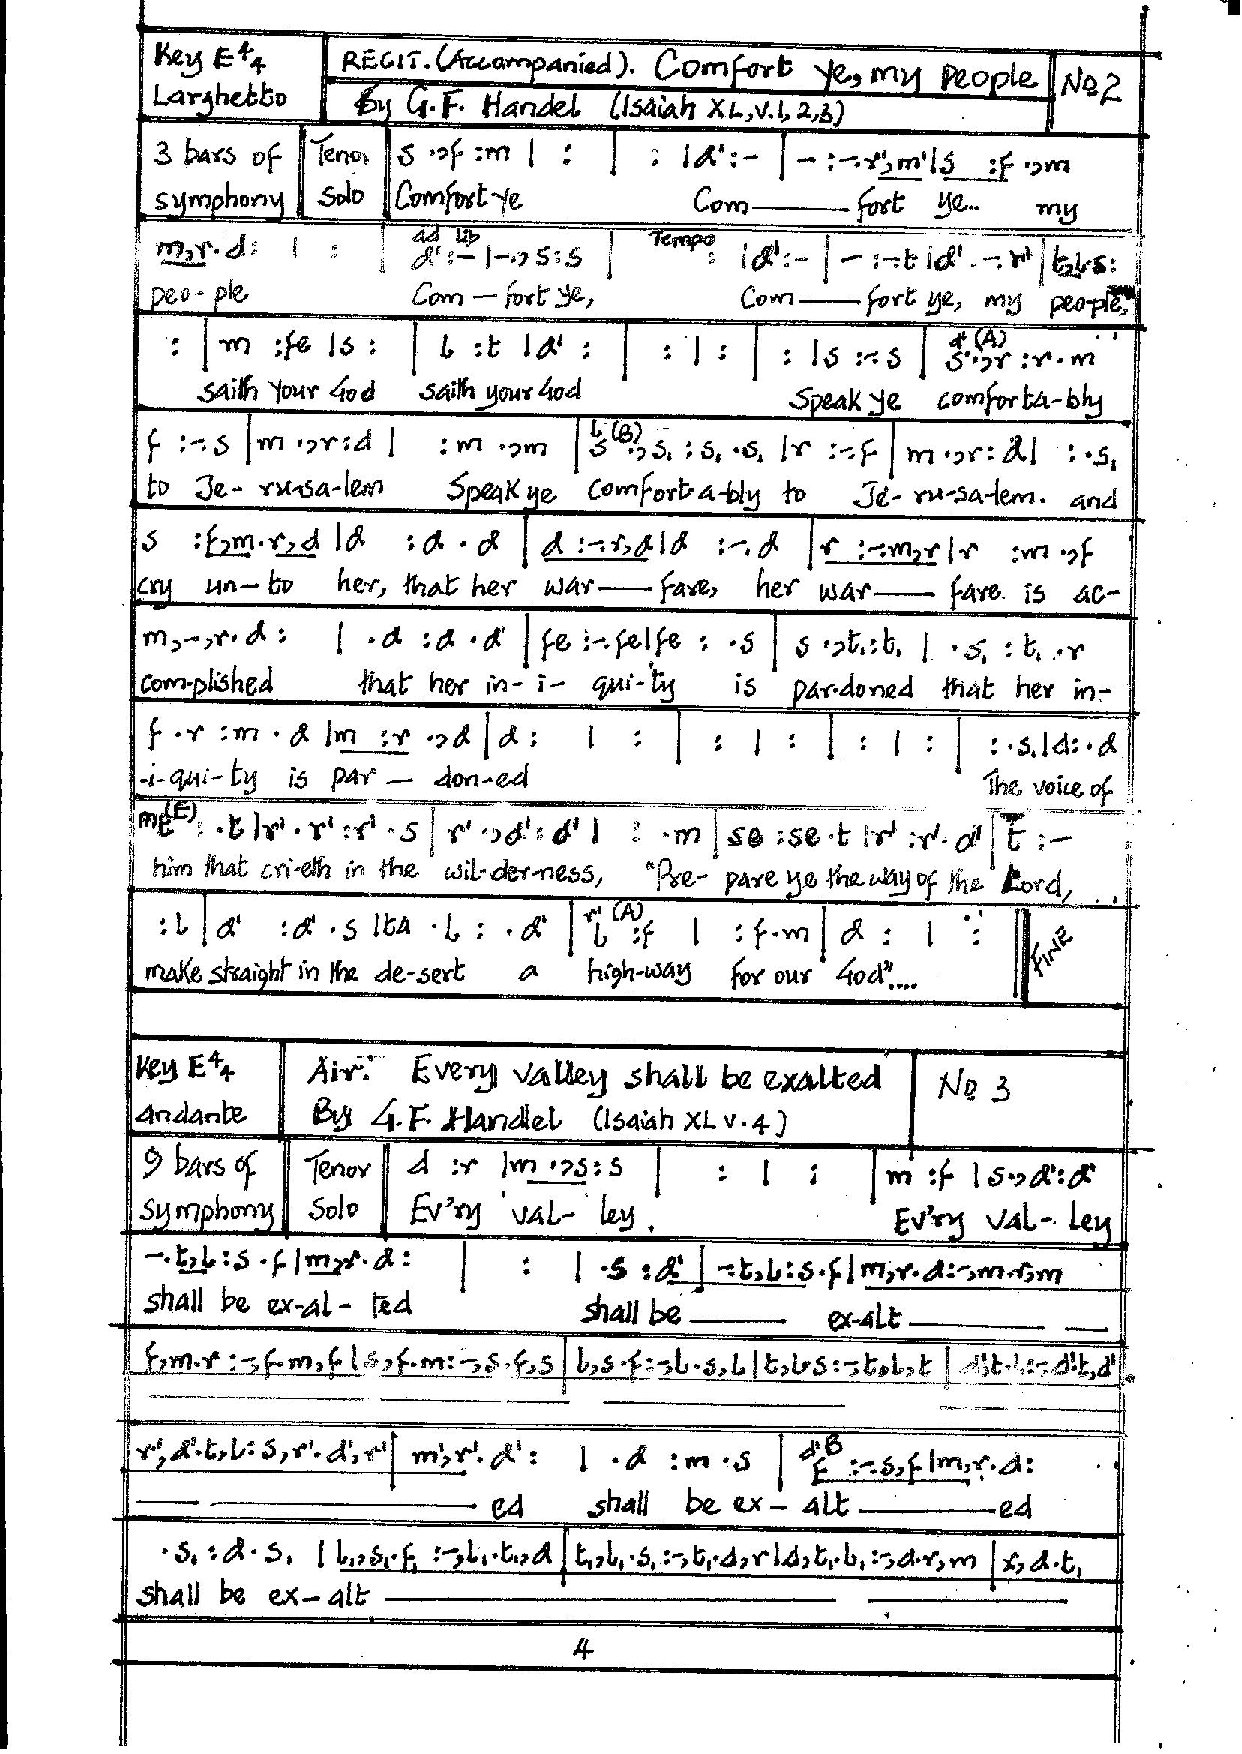 Key E 4/4 RECIT. (Accompanied). Comfort ye, my people No 2
Larghetto By G.F. Handel (Isaiah XL, v. 1, 2, 3)
3 bars of Tenor s .,f :m | : | : |d' :- | - :-.r',m'|s :f .,m
symphony Solo Comfort ye Com——fort ye.. my
m,r.d: | : | ad lib d' :- |-.,s:s | Tempo : |d' :- | - :-.t |d' .-.r' | t,l.s:
peo-ple Com—fort ye, Com——fort ye, my people,
: | m :fe |s : | l :t |d' : | : | : | : |s :-.s | d'(A) s .,r :r.m
saith your God saith your God Speak ye comforta-bly
f :-.s |m .,r:d | :m .,m | l(B) s .,s, :s, .s, |r :-.f | m .,r:d| :.s,
to Je-ru-sa-lem Speak ye comfort-a-bly to Je-ru-sa-lem. and
s :f,m.r,d |d :d.d | d :-.r,d|d :-.d | r :-.m,r|r :m .,f
cry un-to her, that her war——fare, her war——fare is ac-
m,-,r.d: | .d :d.d | fe :-.fe|fe : .s | s .,t,:t, | .s, :t, .r
com-plished that her in-i-qui-ty is par-doned that her in-
f .r :m .d |m :r .,d | d : | : | : | : | : | : | :.s,|d:.d
-i-qui-ty is par—don-ed The voice of
m(E) t : .t |r'.r' :r'.s | r' .,d':d' | : .m | se :se.t |r' :r'.d' | t :-
him that cri-eth in the wil-der-ness, "Pre-pare ye the way of the Lord,
:l | d' :d'.s |ta.l : .d' | r'(A) l :f | :f.m | d : | :
make straight in the de-sert a high-way for our God".... FINE
Key E 4/4 Air: Every valley shall be exalted No 3
Andante By G.F. Handel (Isaiah XL v. 4)
9 bars of Tenor d :r |m .,s:s | : | : | m :f |s.,d':d'
symphony Solo Ev'ry val-ley. Ev'ry val-ley
-.t,l:s.f|m,r.d: | : | .s :d' | -.t,l:s.f|m,r.d:-,m.r,m
shall be ex-al-ted shall be —— ex-alt ——
f,m.r :-,f.m,f |s,f.m:-,s.f,s | l,s.f:-,l.s,l |t,l.s:-,t.l,t | d',t.l:-,d'.t,d'
r',d'.t,l:s,r'.d',r' | m',r'.d': | .d :m.s | d'B f :-.s,f|m,r.d:
—— ed shall be ex-alt —— ed
.s, :d.s, |l,,s,.f, :-,l,.t,,d | t,,l,.s,:-,t,.d,r|d,t,.l,:-,d.r,m | r,d.t,
shall be ex-alt ——
4